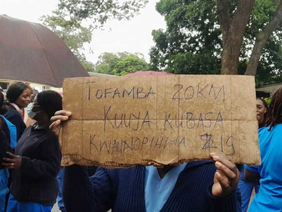 TOFAMBA 20KM
KUUYA KUBASA
KWAINOPIHWA Z19